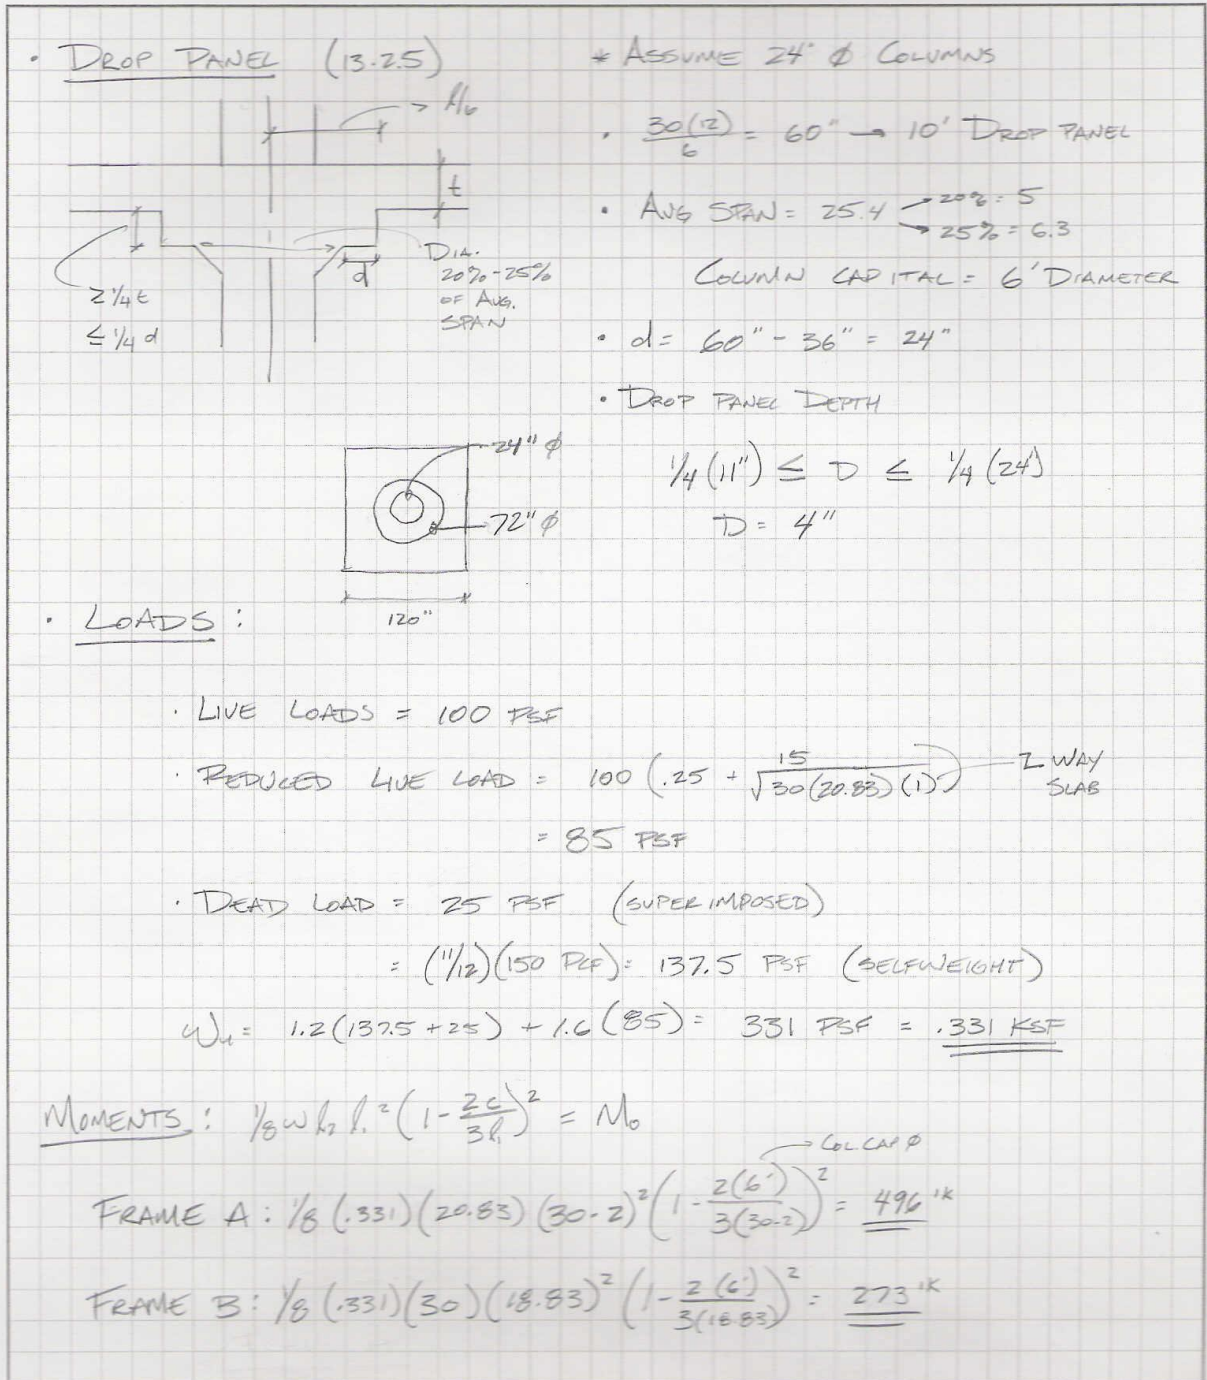 • DROP PANEL (13.2.5)
l/6
t
≥ 1/4 t
≤ 1/4 d
d
DIA.
20%-25%
OF AVG.
SPAN
* ASSUME 24" Ø COLUMNS
• 30(12)/6 = 60" → 10' DROP PANEL
• AVG SPAN = 25.4 → 20% = 5
→ 25% = 6.3
COLUMN CAPITAL = 6' DIAMETER
• d = 60" - 36" = 24"
• DROP PANEL DEPTH
1/4 (11") ≤ D ≤ 1/4 (24)
D = 4"
24" Ø
72" Ø
120"
• LOADS :
· LIVE LOADS = 100 PSF
· REDUCED LIVE LOAD = 100 (.25 + 15/√30(20.83)(1))
2 WAY
SLAB
= 85 PSF
· DEAD LOAD = 25 PSF (SUPERIMPOSED)
= (11/12)(150 PCF) = 137.5 PSF (SELFWEIGHT)
Wu = 1.2(137.5 + 25) + 1.6(85) = 331 PSF = .331 KSF
MOMENTS : 1/8 w l₂ l₁² (1 - 2c/3l₁)² = M₀
COL. CAP Ø
FRAME A : 1/8 (.331)(20.83)(30-2)² (1 - 2(6')/3(30-2))² = 496 'K
FRAME B : 1/8 (.331)(30)(18.83)² (1 - 2(6')/3(18.83))² = 273 'K